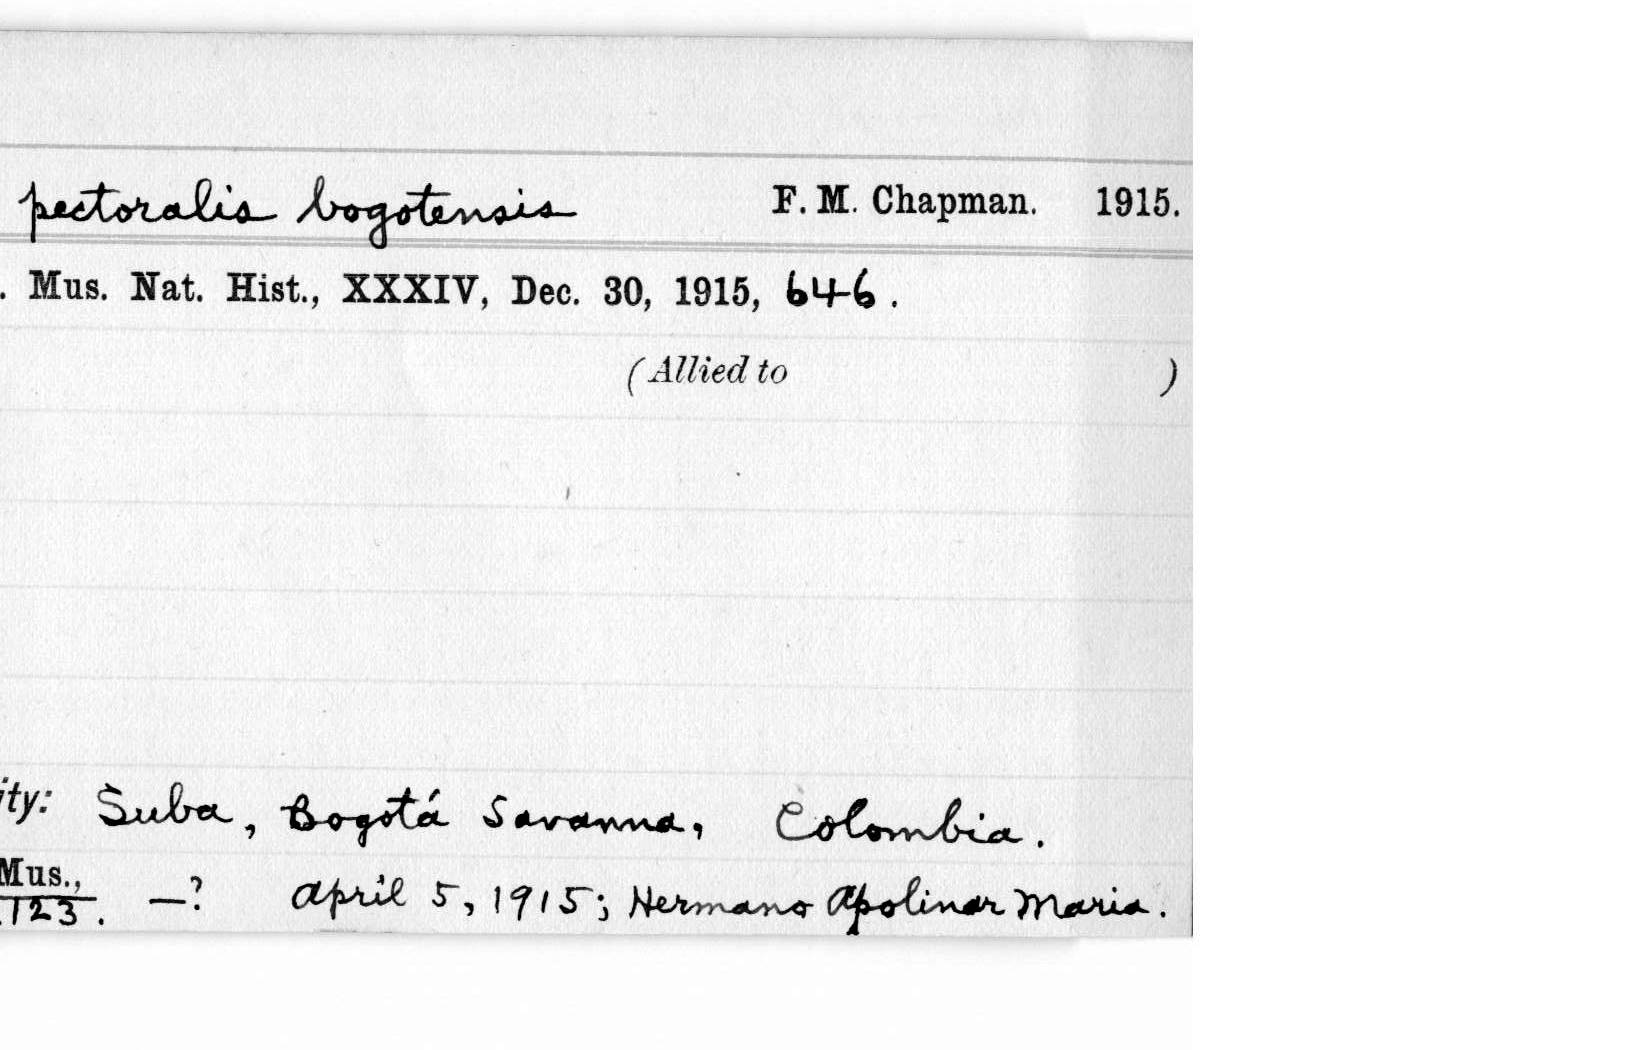 pectoralis bogotensis F. M. Chapman. 1915.
. Mus. Nat. Hist., XXXIV, Dec. 30, 1915, 646.
(Allied to )
ity: Suba, Bogotá Savanna, Colombia.
Mus.,
123. —? April 5, 1915; Hermano Apolinar Maria.